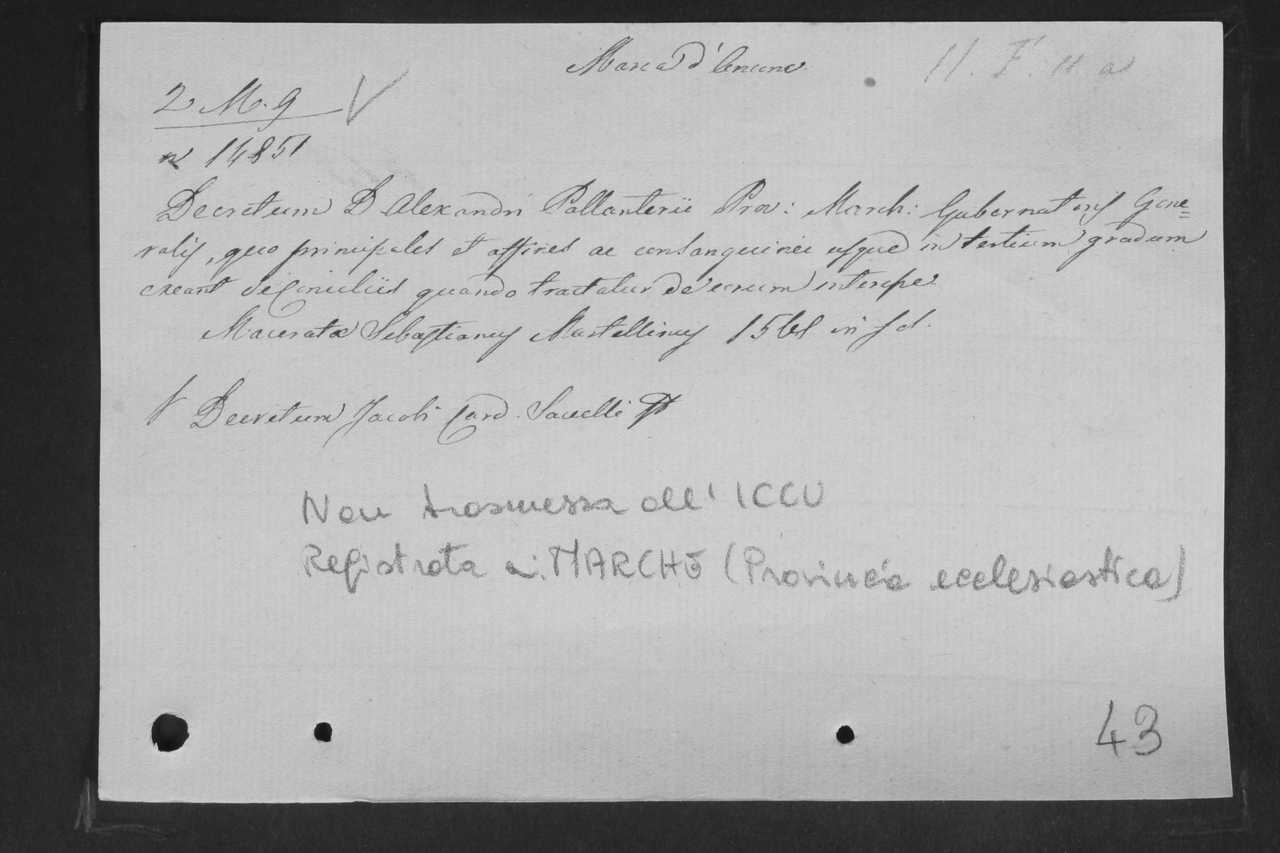 Marca d'Ancona
H. F. 11 a
2. M. 9 V
n 14851
Decretum D Alexandri Pallanterii Prov: March: Gubernatoris Gene=
ralis, quo principales et affines ac consanguinei usque in tertium gradum
exeant de Conciliis quando tractatur de eorum interesse
Maceratæ Sebastianus Martellinus 156 in fol.
Decretum Jacobi Card. Sauelli
Non trasmessa all' ICCU
Registrata a: MARCHE (Provincia ecclesiastica)
43